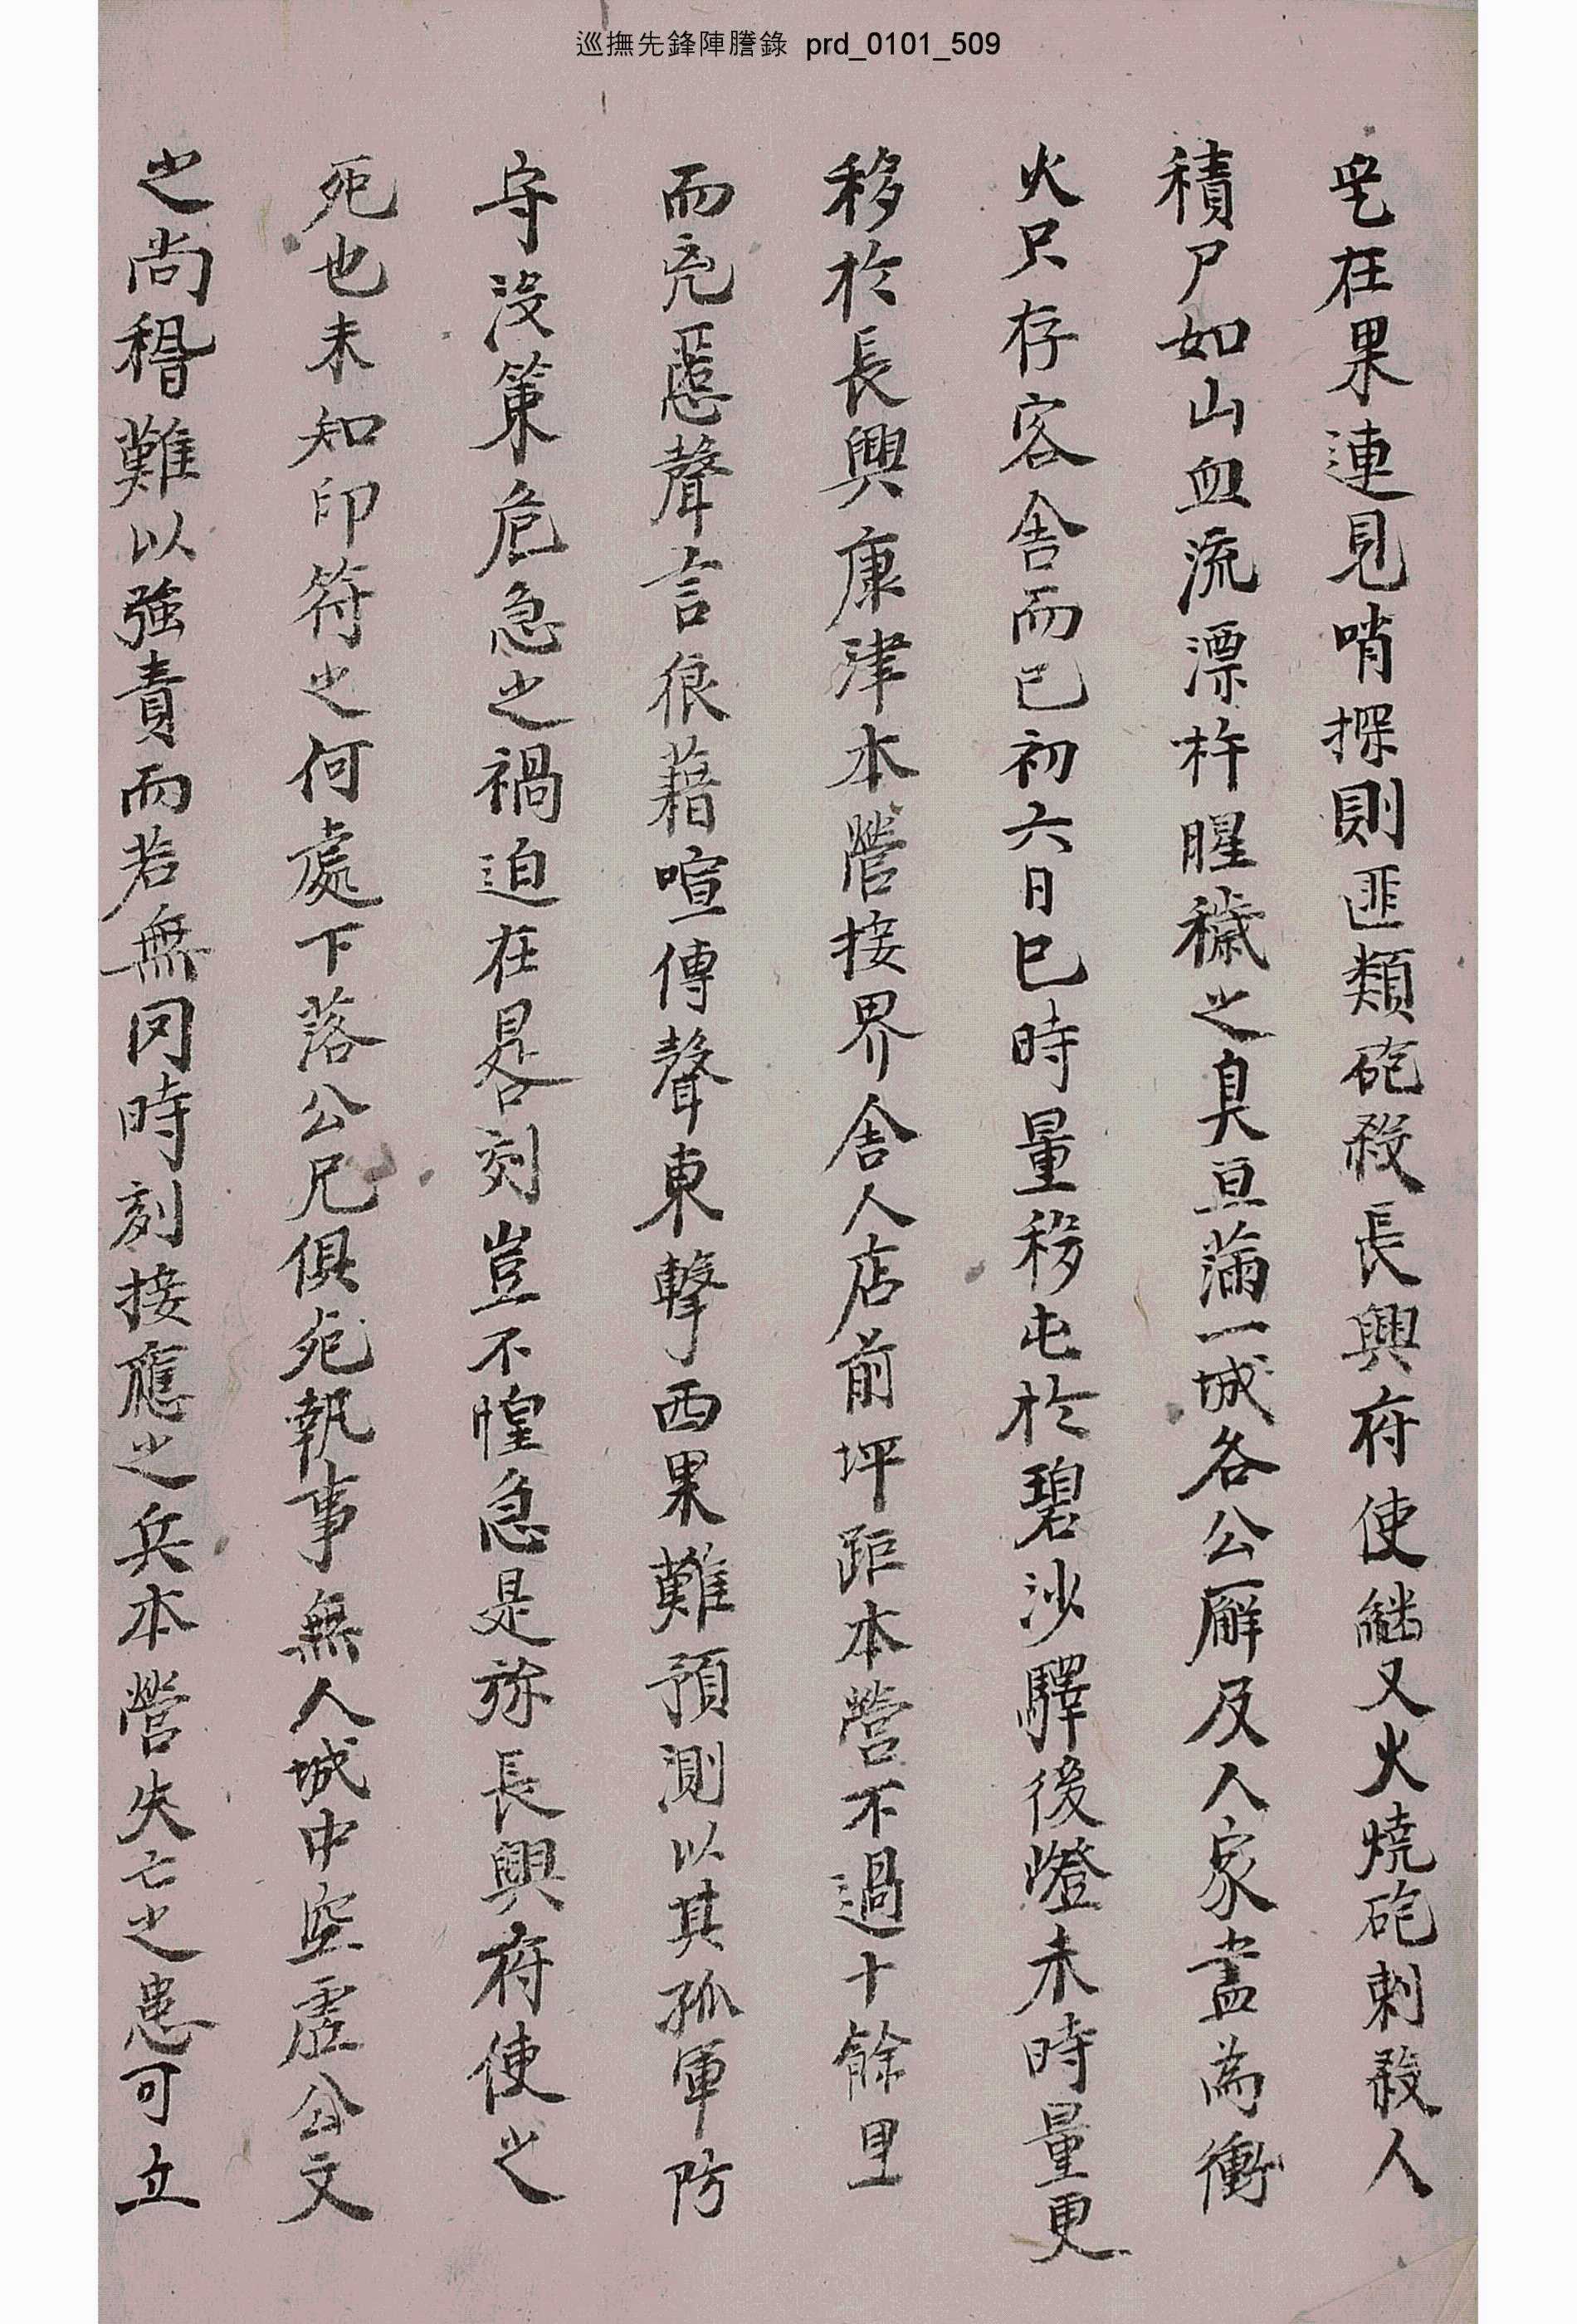 巡撫先鋒陣謄錄 prd_0101_509
皂在果連見哨探則匪類砲殺長興府使繼又火燒砲刺殺人
積尸如山血流漂杵腥穢之臭亘滿一城各公廨及人家盡為衝
火只存客舍而已初六日巳時量移屯於碧沙驛後燈未時量更
移於長興康津本營接界舍人店前坪距本營不過十餘里
而兇惡聲言狼藉喧傳聲東擊西果難預測以其孤軍防
守沒策危急之禍迫在晷刻豈不惶急是旀長興府使之
死也未知印符之何處下落公兄俱死執事無人城中空虛公文
之尚稽難以強責而若無罔時刻接應之兵本營失亡之患可立